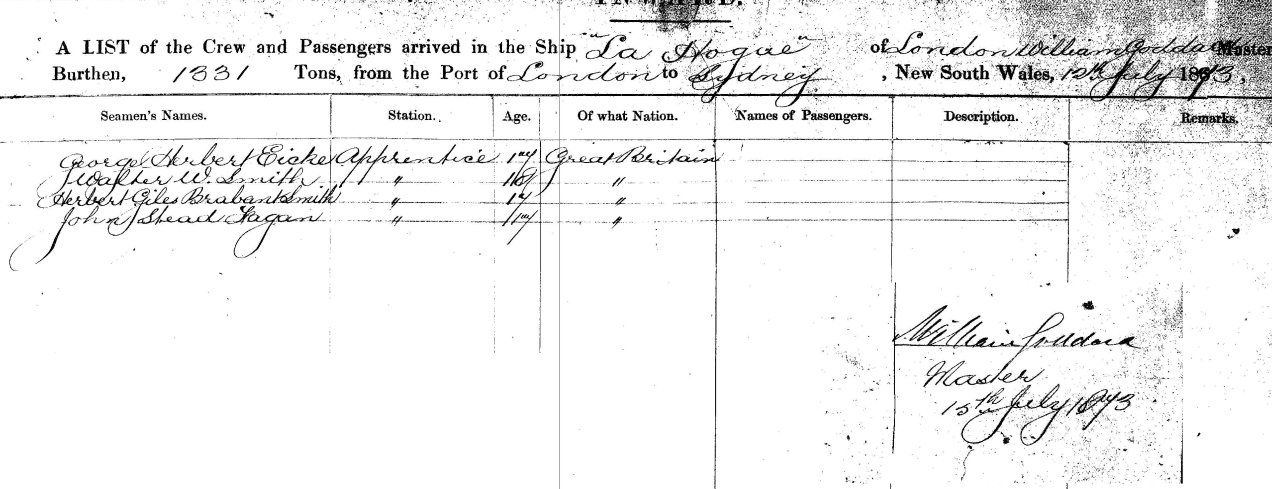 INWARD.
A LIST of the Crew and Passengers arrived in the Ship "La Hogue" of London William Goddard Master
Burthen, 1331 Tons, from the Port of London to Sydney, New South Wales, 12th July 1873.
Seamen's Names. Station. Age. Of what Nation. Names of Passengers. Description. Remarks.
George Herbert Eicke Apprentice 17 Great Britain
Walter W. Smith " 18 "
Herbert Giles Brabant Smith " 17 "
John Stead Fagan " 17 "
William Goddard
Master
15th July 1873